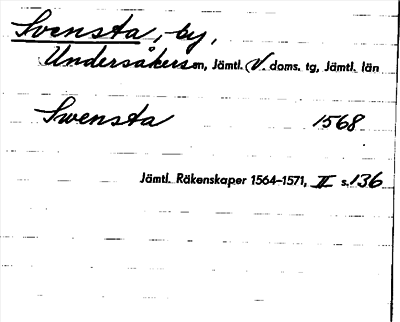 Svensta, by,
Undersåkers sn, Jämtl. V. doms. tg, Jämtl. län
Swensta 1568
Jämtl. Räkenskaper 1564–1571, II s. 136